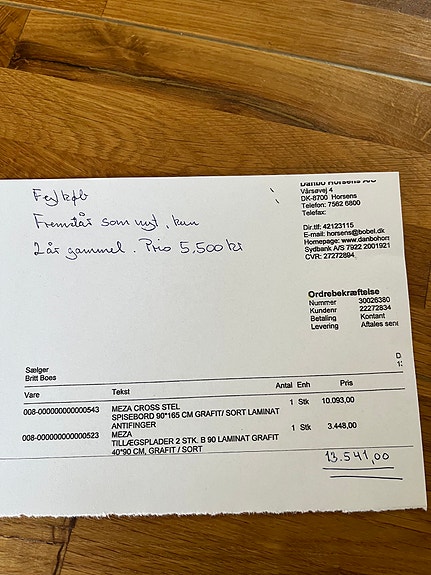 Fejlkøb
Fremstår som nyt, kun
2 år gammel. Pris 5,500 kr
Danbo Horsens A/S
Vårsøvej 4
DK-8700 Horsens
Telefon: 7562 6800
Telefax:
Dir.tlf: 42123115
E-mail: horsens@bobel.dk
Homepage: www.danbohors
Sydbank A/S 7922 2001921
CVR: 27272894
Ordrebekræftelse
Nummer 30026380
Kundenr 22272834
Betaling Kontant
Levering Aftales sene
D
Sælger
Britt Boes
Vare Tekst Antal Enh Pris
008-000000000000543 MEZA CROSS STEL 1 Stk 10.093,00
SPISEBORD 90*165 CM GRAFIT/ SORT LAMINAT
ANTIFINGER
008-000000000000523 MEZA 1 Stk 3.448,00
TILLÆGSPLADER 2 STK. B 90 LAMINAT GRAFIT
40*90 CM, GRAFIT / SORT
13.541,00